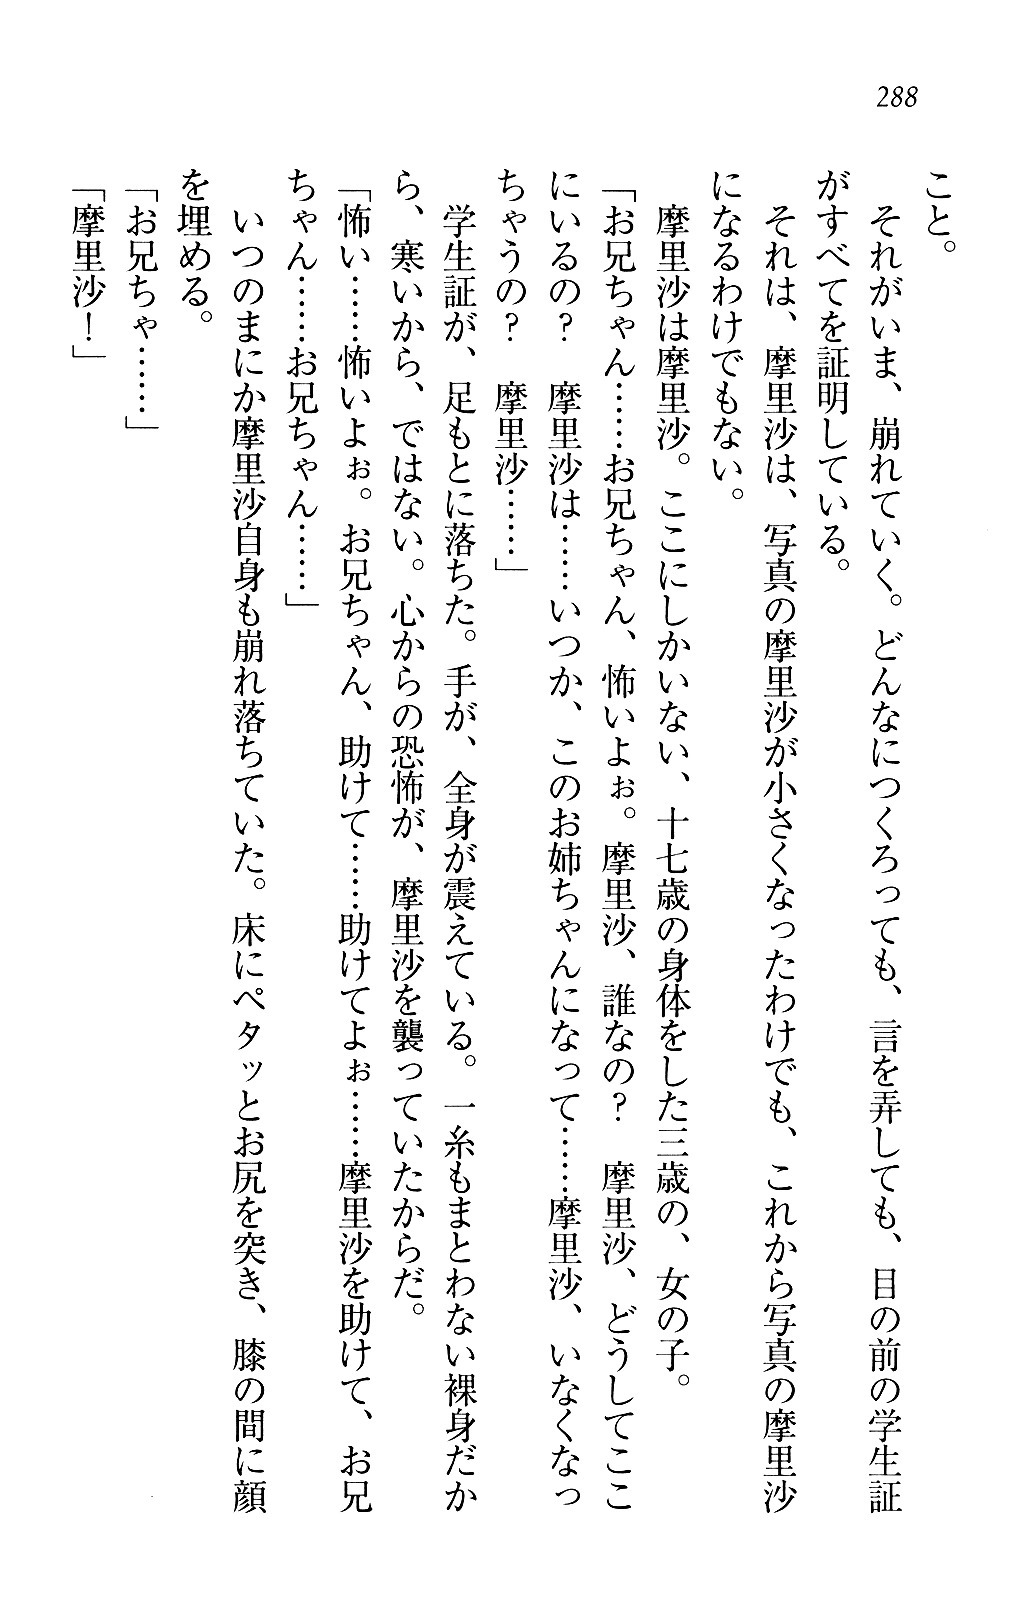 288
こと。
　それがいま、崩れていく。どんなにつくろっても、言を弄しても、目の前の学生証
がすべてを証明している。
　それは、摩里沙は、写真の摩里沙が小さくなったわけでも、これから写真の摩里沙
になるわけでもない。
　摩里沙は摩里沙。ここにしかいない、十七歳の身体をした三歳の、女の子。
「お兄ちゃん……お兄ちゃん、怖いよぉ。摩里沙、誰なの？　摩里沙、どうしてここ
にいるの？　摩里沙は……いつか、このお姉ちゃんになって……摩里沙、いなくなっ
ちゃうの？　摩里沙……」
　学生証が、足もとに落ちた。手が、全身が震えている。一糸もまとわない裸身だか
ら、寒いから、ではない。心からの恐怖が、摩里沙を襲っていたからだ。
「怖い……怖いよぉ。お兄ちゃん、助けて……助けてよぉ……摩里沙を助けて、お兄
ちゃん……お兄ちゃん……」
　いつのまにか摩里沙自身も崩れ落ちていた。床にペタッとお尻を突き、膝の間に顔
を埋める。
「お兄ちゃ……」
「摩里沙！」